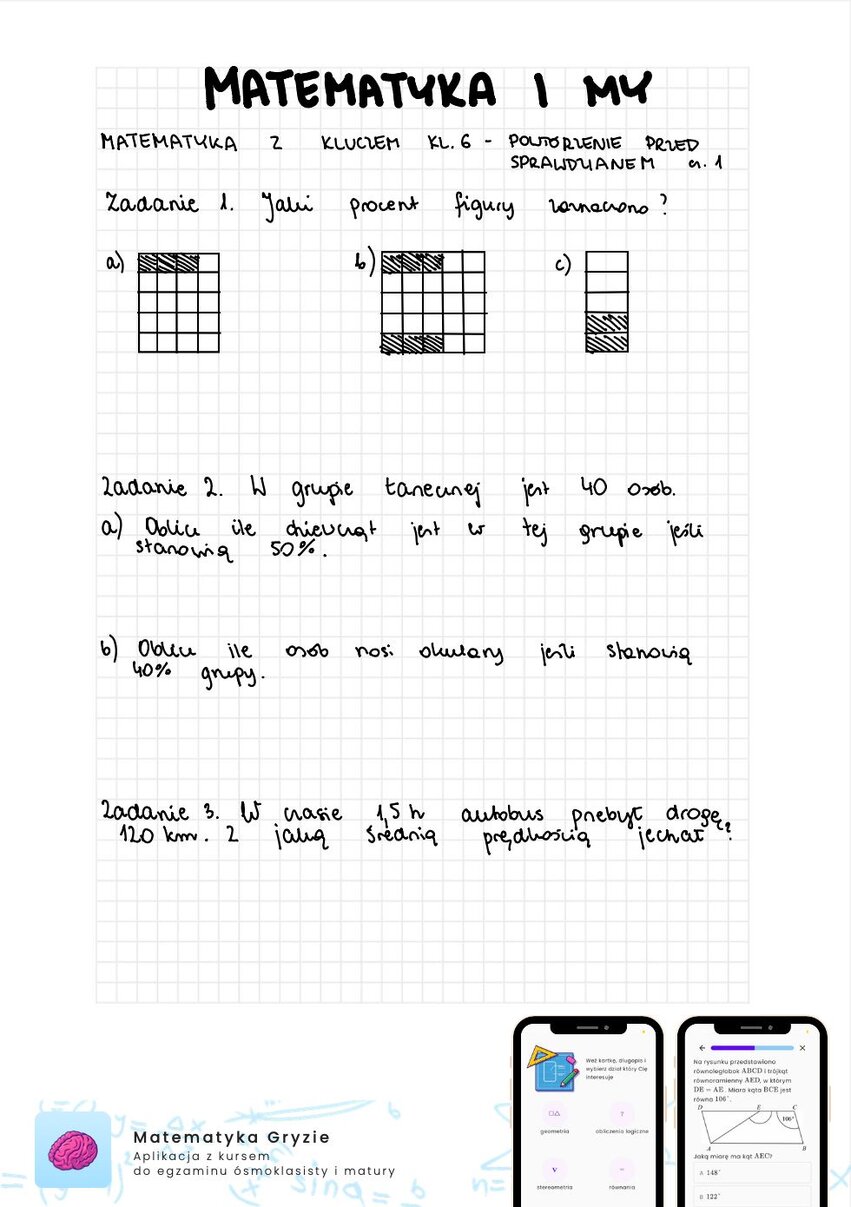 MATEMATYKA I MY
MATEMATYKA Z KLUCZEM KL. 6 - POWTÓRZENIE PRZED
SPRAWDZIANEM cz. 1
Zadanie 1. Jaki procent figury zaznaczono?
a)
b)
c)
Zadanie 2. W grupie tanecznej jest 40 osób.
a) Oblicz ile dziewcząt jest w tej grupie jeśli
stanowią 50%.
b) Oblicz ile osób nosi okulary jeśli stanowią
40% grupy.
Zadanie 3. W czasie 1,5 h autobus przebył drogę
120 km. Z jaką średnią prędkością jechał?
Matematyka Gryzie
Aplikacja z kursem
do egzaminu ósmoklasisty i matury
Weź kartkę, długopis i
wybierz dział który Cię
interesuje
geometria
obliczenia logiczne
stereometria
równania
Na rysunku przedstawiono
równoległobok ABCD i trójkąt
równoramienny AED, w którym
DE = AE. Miara kąta BCE jest
równa 106°.
D E C
106°
A B
Jaką miarę ma kąt AEC?
A 148°
B 122°